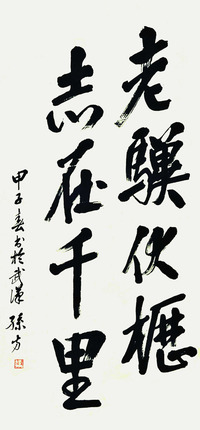 老驥伏櫪
志在千里
甲子春书於武漢孫方